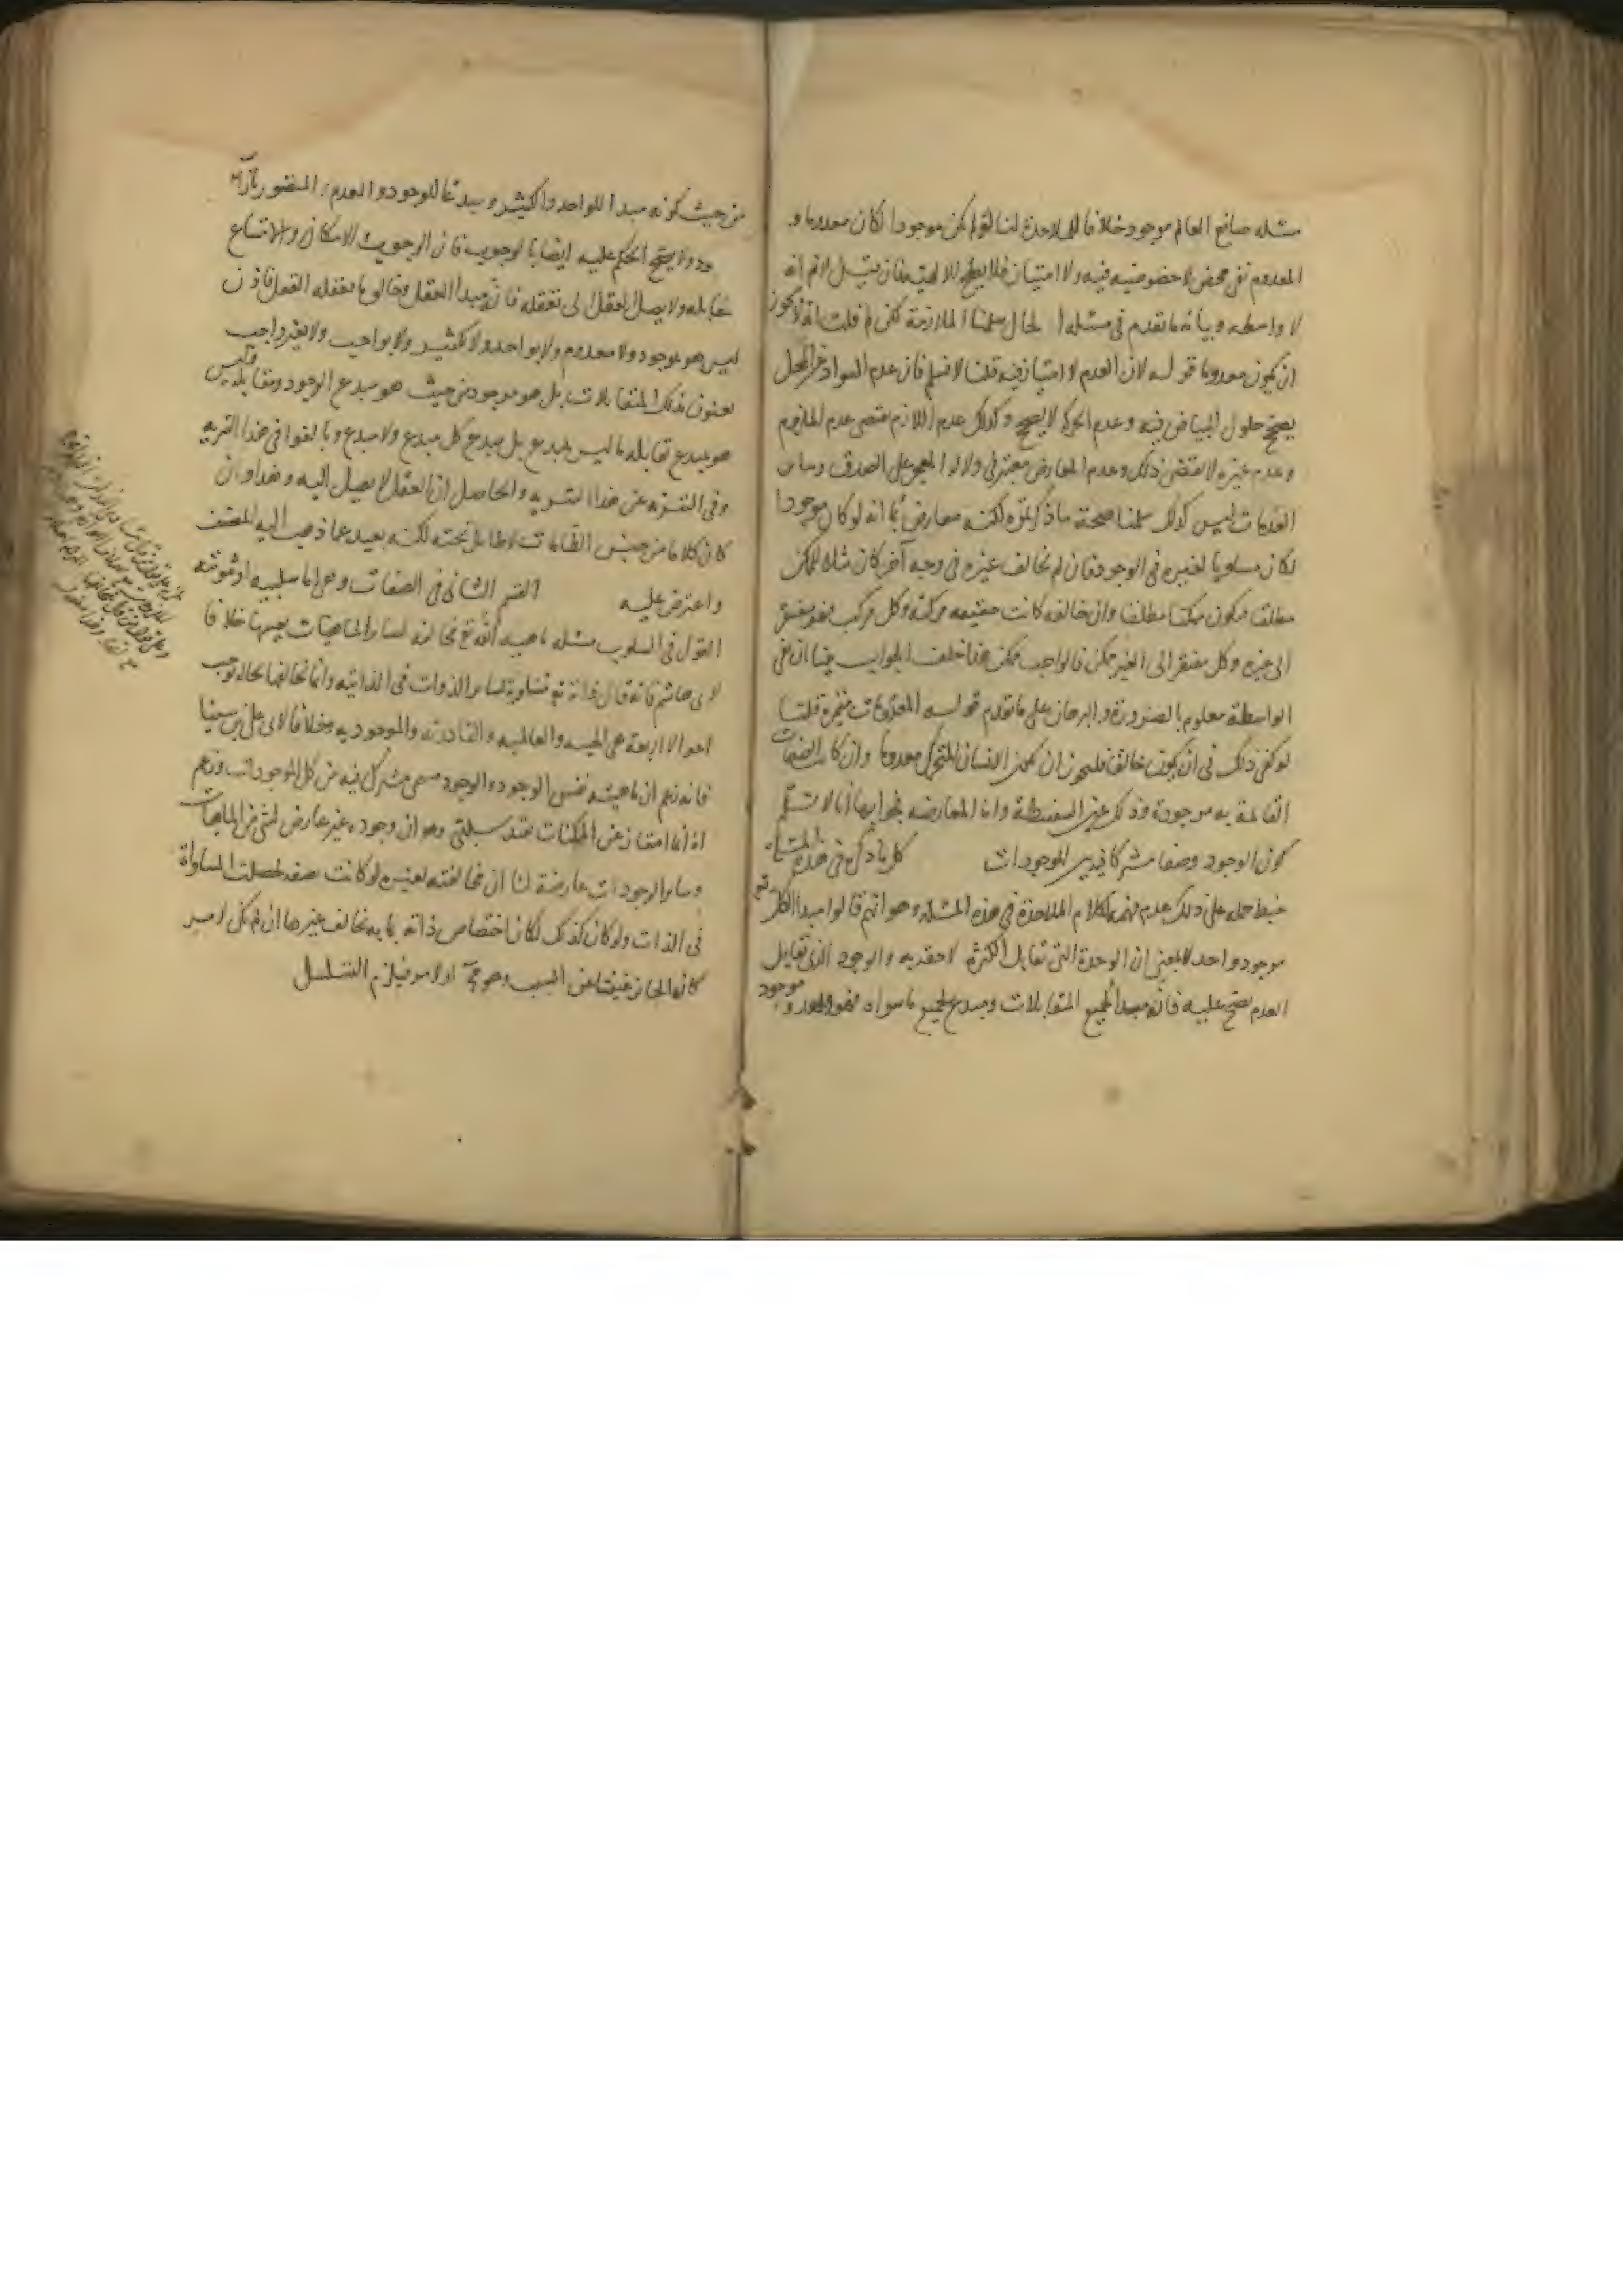 مسئله صانع العالم موجود خلافا للملاحدة لنا لو لم يكن موجودا لكان معدوما و
المعدوم نفى محض لا خصوصية فيه ولا امتياز فلا يصلح للالهية فان قيل لانم انه
لا واسطه وبيانه ما تقدم فى مسئلة الحال سلمنا الملازمة لكن لم قلت انه لا يجوز
ان يكون معدوما قوله لان العدم لا امتياز فيه قلنا لا نسلم فان عدم السواد عن المحل
يصحح حلول البياض فيه وعدم الحركة لا يصحح وكذلك عدم اللازم يقتضى عدم الملزوم
وعدم غيره لا يقتضى ذلك وعدم المعارض معتبر فى دلالة المعجز على الصدق وساير
العدمات ليس كذلك سلمنا صحة ما ذكرتموه لكنه معارض بما انه لو كان موجودا
لكان مساويا لغيره فى الوجود فان لم يخالف غيره فى وجه آخر كان مثلا للممكن
مطلقا فيكون ممكنا مطلقا وان خالفه كانت حقيقته مركبة وكل مركب فهو مفتقر
الى جزءه وكل مفتقر الى الغير ممكن فالواجب ممكن هذا خلف الجواب بينا ان نفى
الواسطة معلوم بالضرورة والبرهان على ما تقدم قوله المعدومات متميزة قلنا
لو كفى ذلك فى ان يكون خالقا فليجوز ان يكون الانسان المتحرك معدوما وان كانت الصفات
القائمة به موجودة وذلك عين السفسطة واما المعارضه فجوابها انا لا نسلم
كون الوجود وصفا مشتركا فيه بين الموجودات كل ما ذكره فى هذه المسئلة
خبط حمله على ذلك عدم فهمه لكلام الملاحدة فى هذه المسئلة وهو انهم قالوا مبدا الكل تع
موجود واحد لا بمعنى ان الوحدة التى تقابل الكثرة لاحقة به والوجود الذى يقابل
العدم يصح عليه فانه مبدا لجميع المتقابلات ومبدع لجميع ما سواه فهو واحد وموجود
من حيث كونه مبدا للواحد والكثير ومبدعا للوجود والعدم المتصور بازاء
ولا يصح الحكم عليه ايضا بالوجوب فان الوجوب الامكان والامتناع
يقابله ولا يصل العقل الى تعقله فانه مبدا العقل وخالق ما يعقله العقل فاذن
ليس هو بموجود ولا معدوم ولا بواحد ولا بكثير ولا بواجب ولا بغير واجب
يعنون بذلك المتقابلات بل هو موجود من حيث هو مبدع الوجود ومقابله وليس
هو مبدع يقابله ما ليس بمبدع بل مبدع كل مبدع ولا مبدع وبالغوا فى هذا التنزيه
وفى التنزه عن هذا التنزيه والحاصل ان العقل لا يصل اليه وهذا وان
كان كلاما من جنس الطامات لا طايل تحته لكنه بعيد عما ذهب اليه المصنف
واعترض عليه القسم الثانى فى الصفات وهى اما سلبيه او ثبوتيه
القول فى السلوب مسئله ماهية الله تع مخالفة لساير الماهيات بعينها خلافا
لابى هاشم فانه قال ذاته تع مساوية لساير الذوات فى الذاتية وانما يخالفها بحالة توجب
احوالا اربعة هى الحيية والعالمية والقادرية والموجودية وخلافا لابى على بن سينا
فانه زعم ان ماهيته نفس الوجود والوجود مسمى مشترك فيه من كل الموجودات وزعم
انه انما امتاز عن الممكنات بقيد سلبى وهو ان وجوده غير عارض لشئ من الماهيات
وساير الوجودات عارضة لنا ان مخالفته لغيره لو كانت بصفة لحصلت المساواة
فى الذات ولو كان كذلك لكان اختصاص ذاته بما به يخالف غيرها ان لم يكن لامر
كان الجايز غنيا عن السبب وهو مح او لامر فيلزم التسلسل